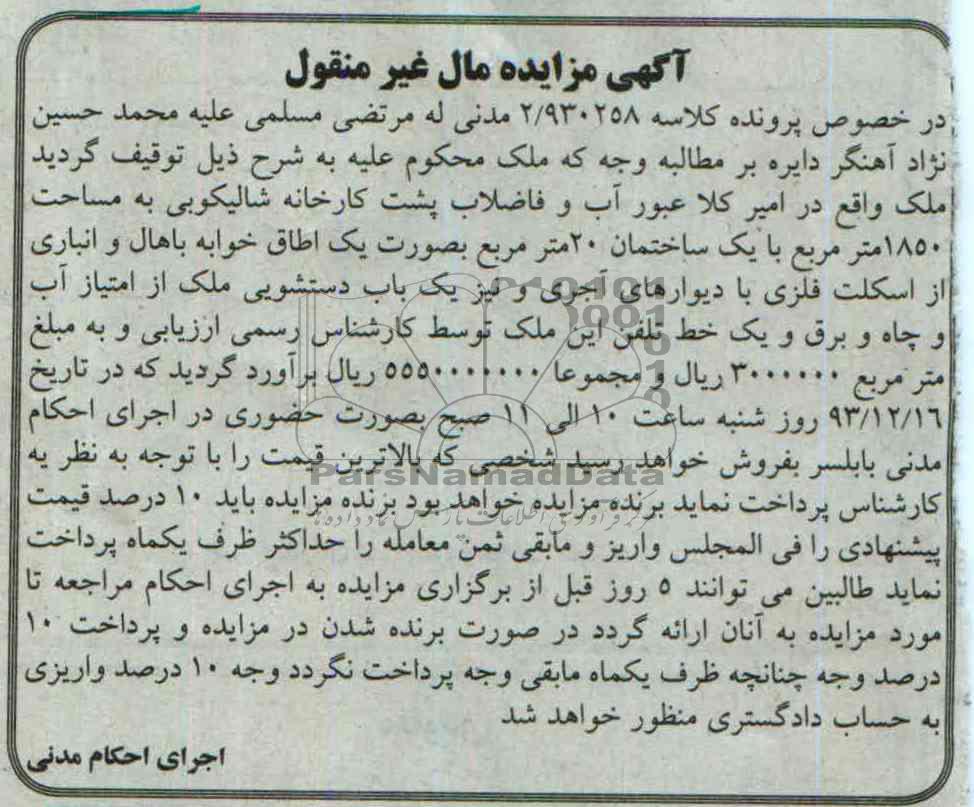 آگهی مزایده مال غیر منقول
در خصوص پرونده کلاسه ۲/۹۳۰۲۵۸ مدنی له مرتضی مسلمی علیه محمد حسین
نژاد آهنگر دایره بر مطالبه وجه که ملک محکوم علیه به شرح ذیل توقیف گردید
ملک واقع در امیر کلا عبور آب و فاضلاب پشت کارخانه شالیکوبی به مساحت
۱۸۵۰متر مربع با یک ساختمان ۲۰متر مربع بصورت یک اطاق خوابه باهال و انباری
از اسکلت فلزی با دیوارهای آجری و نیز یک باب دستشویی ملک از امتیاز آب
و چاه و برق و یک خط تلفن این ملک توسط کارشناس رسمی ارزیابی و به مبلغ
متر مربع ۳۰۰۰۰۰۰ ریال و مجموعا ۵۵۵۰۰۰۰۰۰۰ ریال برآورد گردید که در تاریخ
۹۳/۱۲/۱۶ روز شنبه ساعت ۱۰ الی ۱۱ صبح بصورت حضوری در اجرای احکام
مدنی بابلسر بفروش خواهد رسید شخصی که بالاترین قیمت را با توجه به نظر یه
ParsNamadData
کارشناس پرداخت نماید برنده مزایده خواهد بود برنده مزایده باید ۱۰ درصد قیمت
پیشنهادی را فی المجلس واریز و مابقی ثمن معامله را حداکثر ظرف یکماه پرداخت
نماید طالبین می توانند ۵ روز قبل از برگزاری مزایده به اجرای احکام مراجعه تا
مورد مزایده به آنان ارائه گردد در صورت برنده شدن در مزایده و پرداخت ۱۰
درصد وجه چنانچه ظرف یکماه مابقی وجه پرداخت نگردد وجه ۱۰ درصد واریزی
به حساب دادگستری منظور خواهد شد
اجرای احکام مدنی